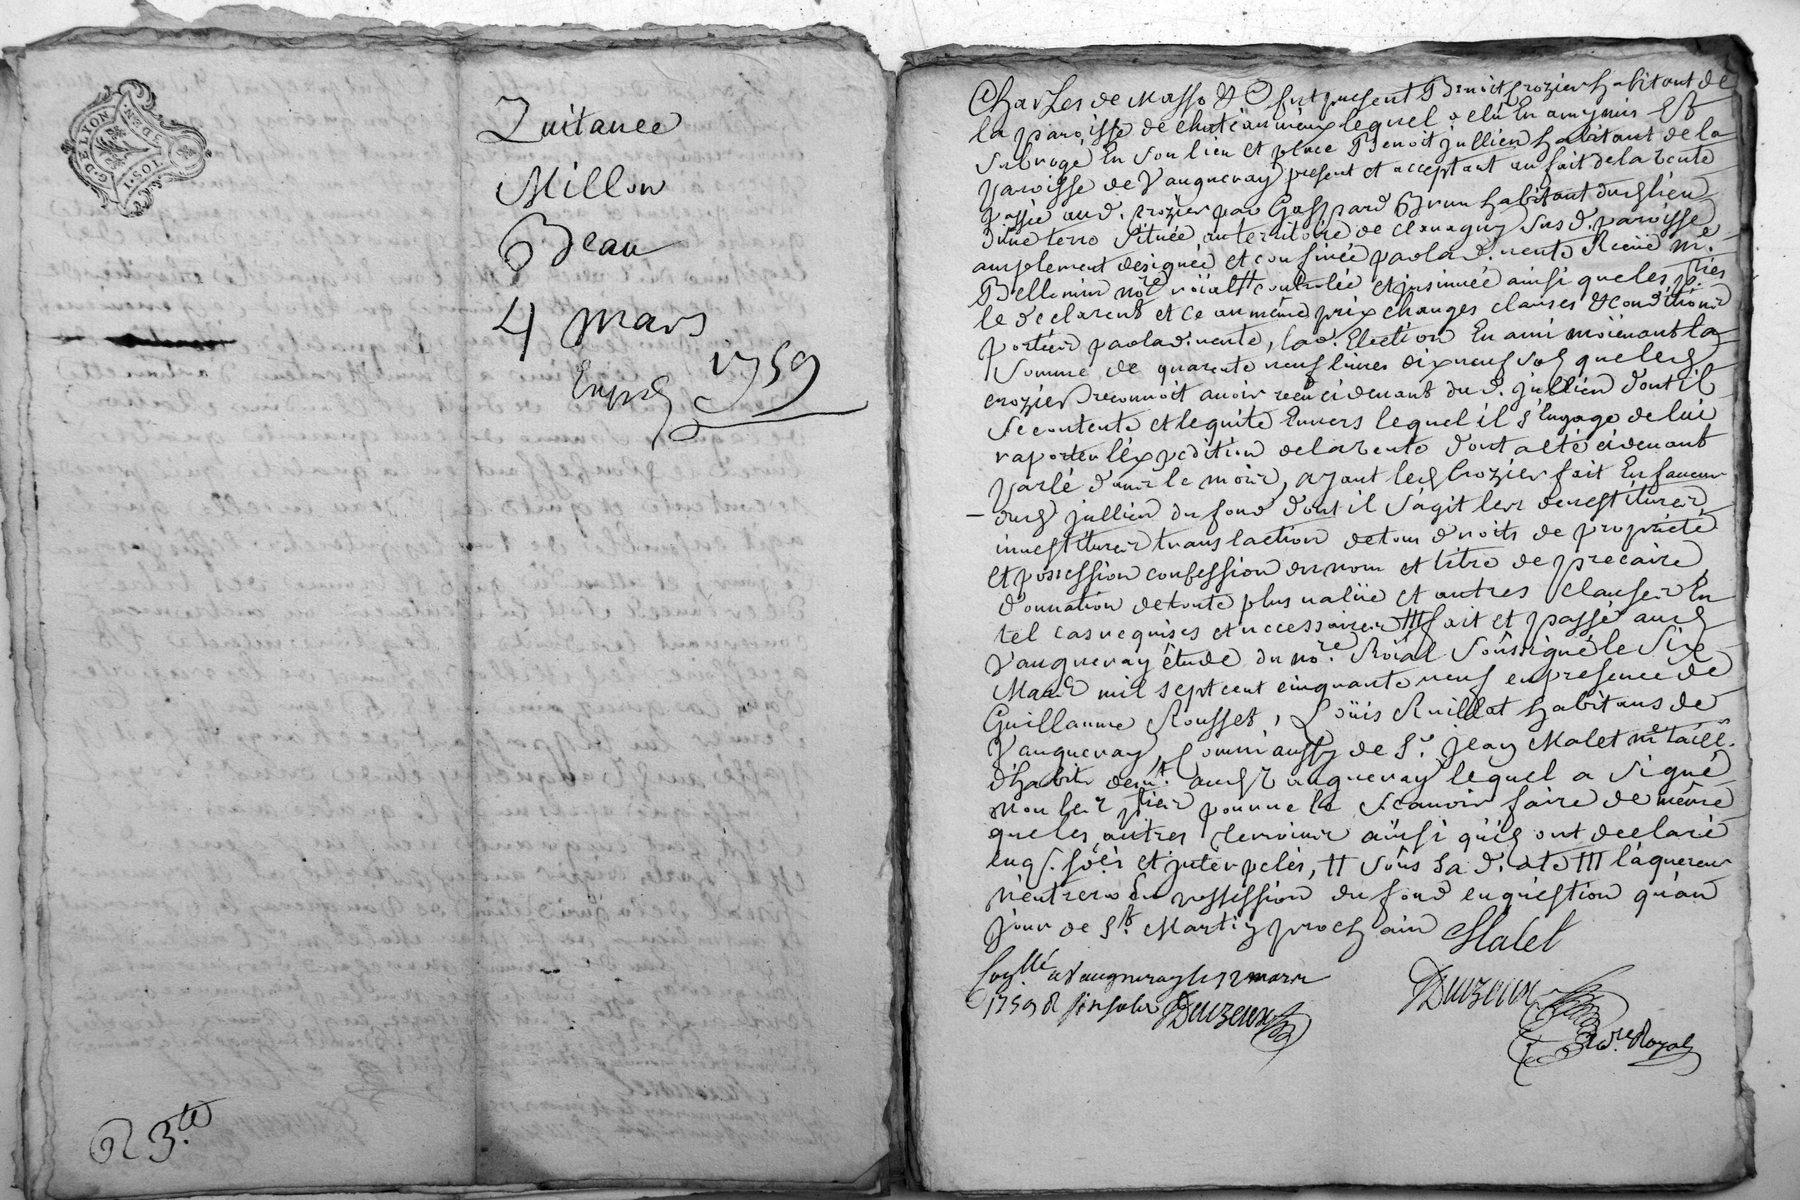 G. DE LYON
1. SOL
8 DEN.
Quitance
Millon
Beau
4 mars
1759
Exped
R 3.tt
Charles de Masso &c fut present Benoit Crozier habitant de
la paroisse de chateauvieux lequel a elû En amy mis Et
Subrogé En son lieu et place Benoit jullien habitant de la
paroisse de Vaugneray present et acceptant au fait de la vente
passée aud. crozier par Gaspard Brun habitant dud lieu
dune terre située au territoire de Chanagny Susd. paroisse
amplement designée et confinée par lad. vente Recüe me.
Bellemin nore. roïal tt controlée et insinuée ainsi que les pties
le declarent et ce au même prix charges clauses & conditions
portées par lad. vente, lad. Election En ami moïenant la
Somme de quarente neuf livres dix neuf sols que led
crozier reconnoit avoir recu cidevant du d. jullien dont il
se contente et le quite Envers lequel il s'Engage de lui
raporter l'éxpedition de la vente dont a eté cidevant
parlé dans le mois, ayant led Crozier fait En faveur
dud jullien du fond dont il s'agit les devestitures
investitures translaction de tous droits de proprieté
et possession confession du nom et titre de precaire
donnation de toute plus valüe et autres clauses En
tel cas requises et necessaires ttt fait et passé aud
Vaugneray étude du nore. Roïal soussigné le six
Mars mil sept cent cinquante neuf en presence de
Guillaume Rousset, Loüis Ruillat habitans de
Vaugneray, Comm'aussy de Sr. Jean Malet me. taill.
d'habits demt. aud Vaugneray lequel a signé
non les pties pour ne le scavoir faire de même
que les autres temoins aïnsi quils ont declaré
enqs. soés et interpelés, tt sous sa d. ate ttt l'aquereur
n'entrera En possession du fond en quéstion qu'au
jour de St. Martin prochain Malet
Coyllé a Vaugneray le 12 mars
Duzeux
1759 R six sols Duzeux
nore Royal